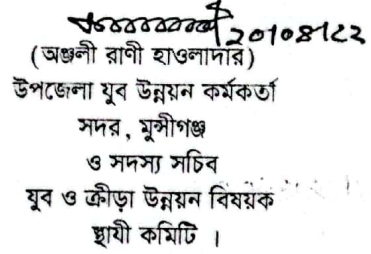 20108122
(অঞ্জলী রাণী হাওলাদার)
উপজেলা যুব উন্নয়ন কর্মকর্তা
সদর, মুন্সীগঞ্জ
ও সদস্য সচিব
যুব ও ক্রীড়া উন্নয়ন বিষয়ক
স্থায়ী কমিটি ।